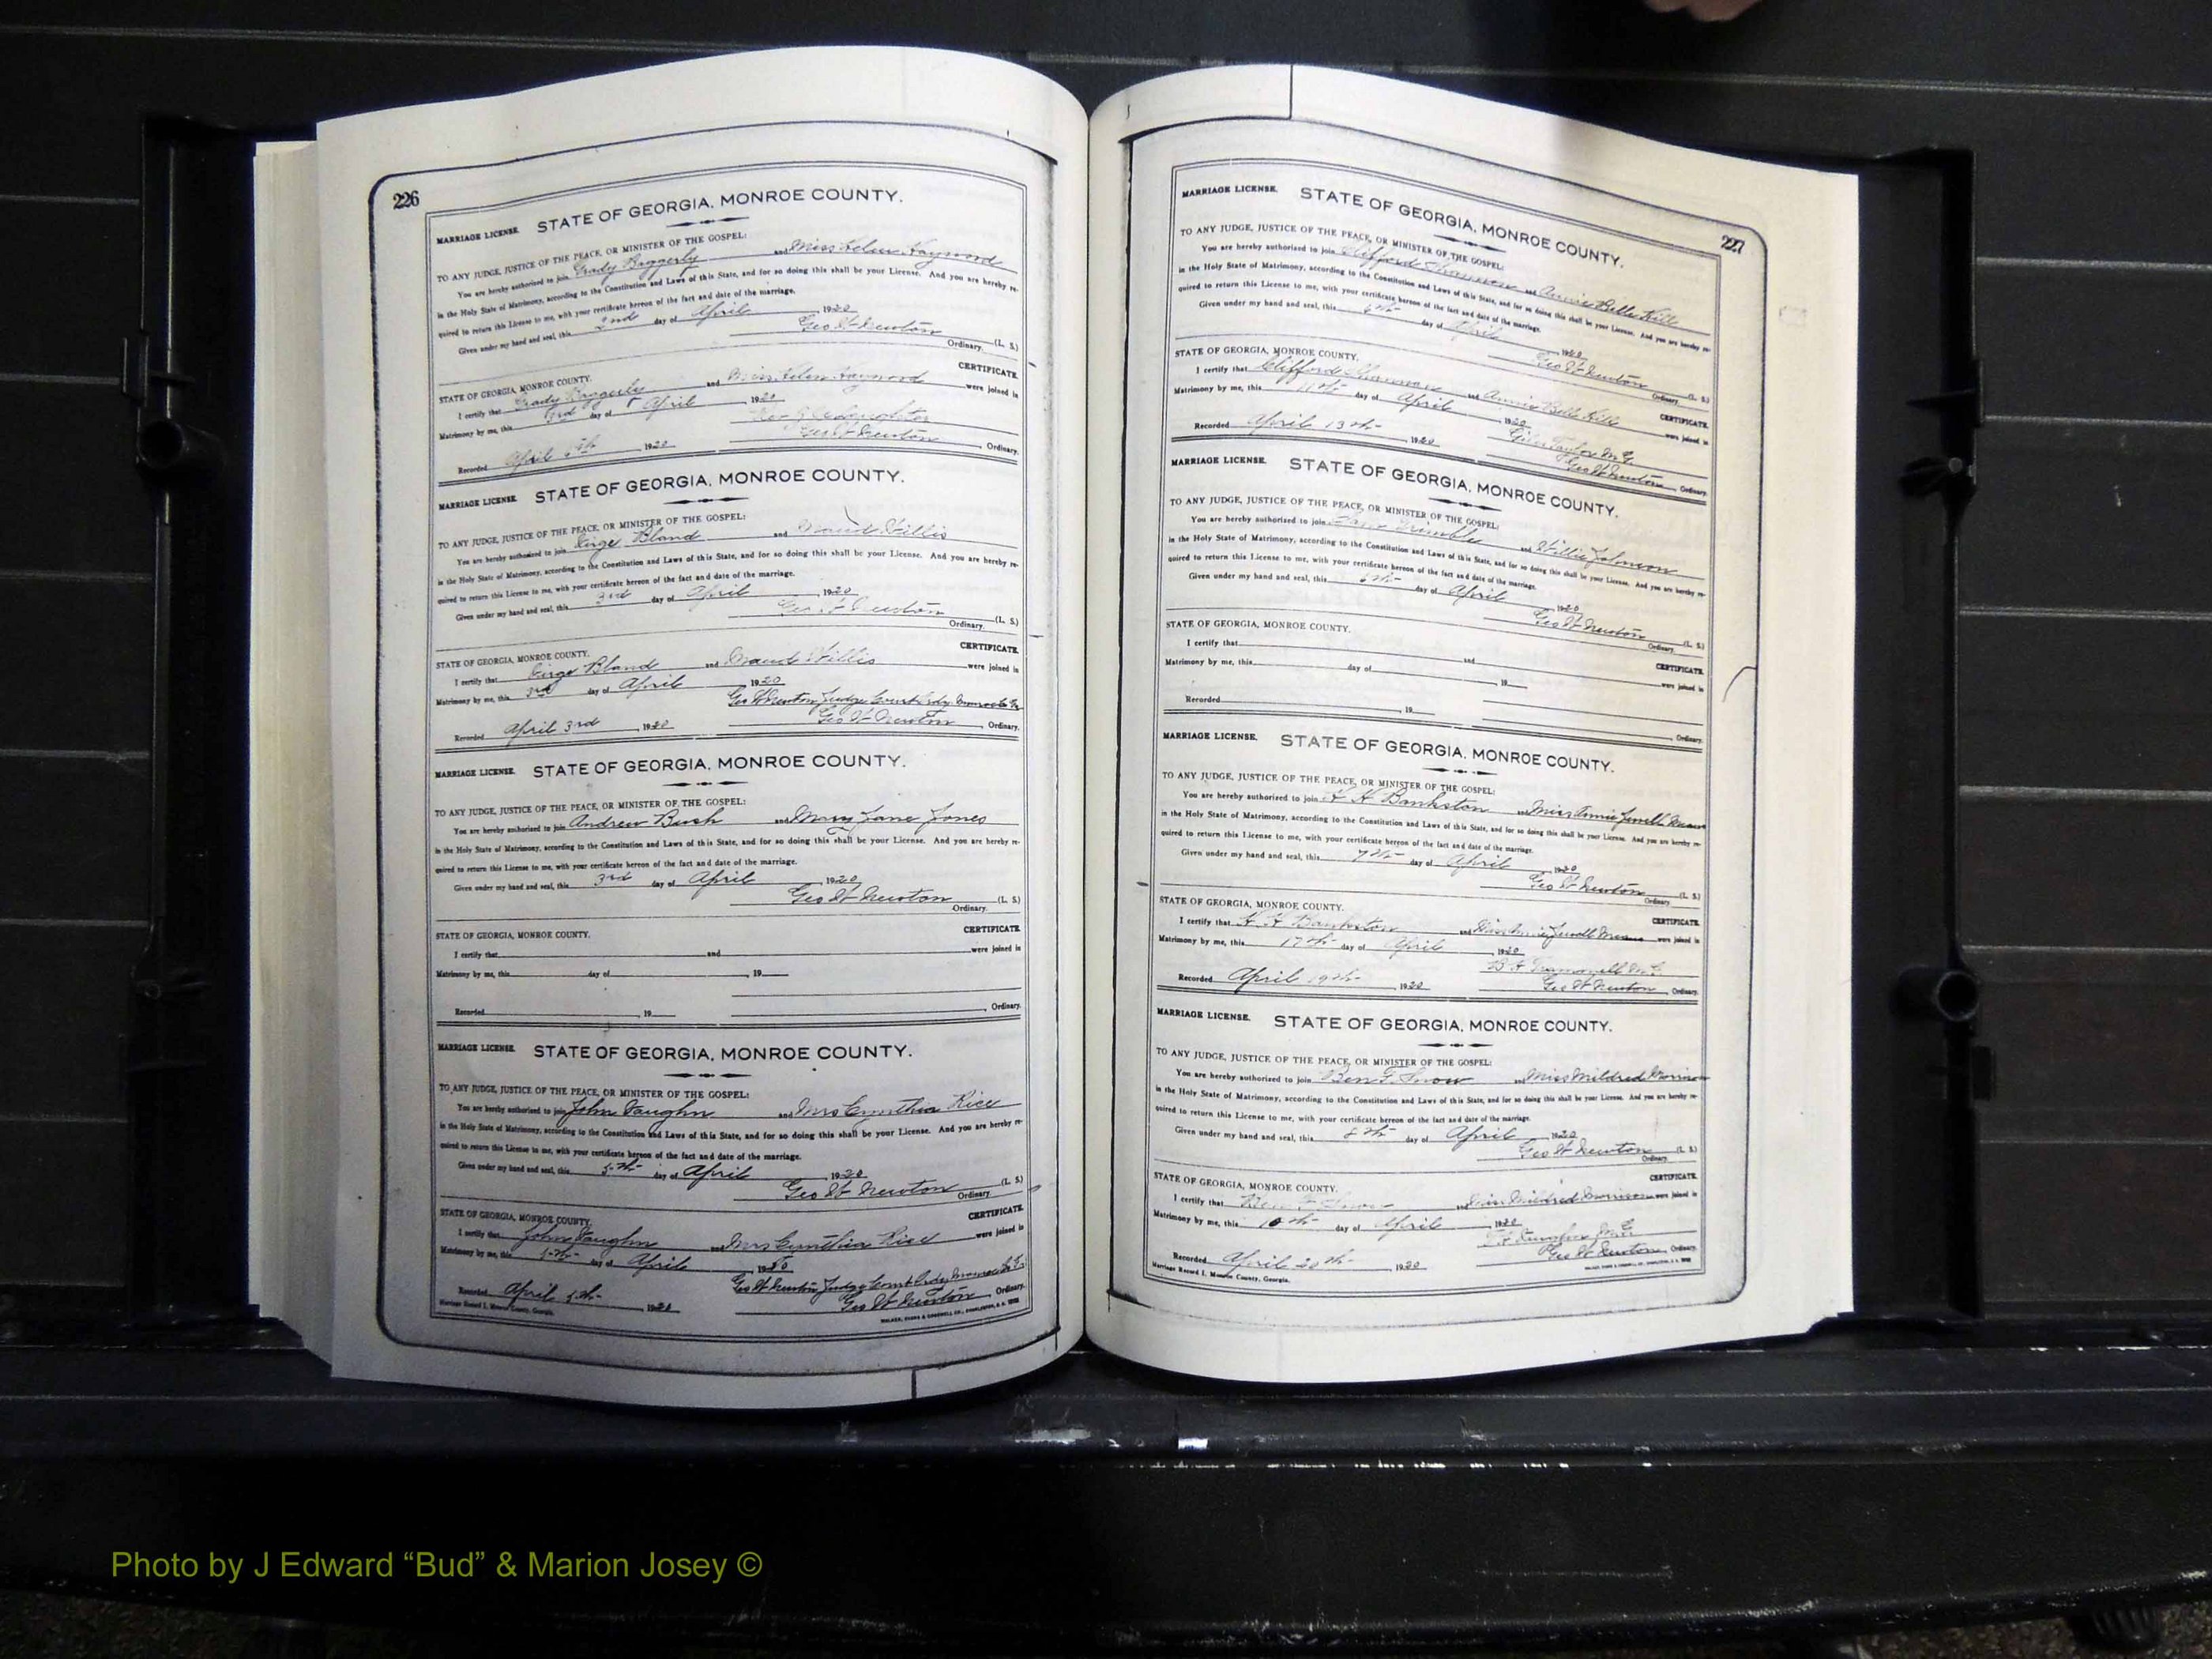 226
MARRIAGE LICENSE. STATE OF GEORGIA, MONROE COUNTY.
TO ANY JUDGE, JUSTICE OF THE PEACE, OR MINISTER OF THE GOSPEL:
You are hereby authorized to join Grady Biggerly and Miss Helen Haywood
in the Holy State of Matrimony, according to the Constitution and Laws of this State, and for so doing this shall be your License. And you are hereby re-
quired to return this License to me, with your certificate hereon of the fact and date of the marriage.
Given under my hand and seal, this 2nd day of April 1920
Geo W Newton (L. S.)
Ordinary.
STATE OF GEORGIA, MONROE COUNTY. CERTIFICATE.
I certify that Grady Biggerly and Miss Helen Haywood were joined in
Matrimony by me, this 3rd day of April 1920
Recorded April 5th, 1920 Geo W Newton, Ordinary.
MARRIAGE LICENSE. STATE OF GEORGIA, MONROE COUNTY.
TO ANY JUDGE, JUSTICE OF THE PEACE, OR MINISTER OF THE GOSPEL:
You are hereby authorized to join Virge Bland and Maud Willis
in the Holy State of Matrimony, according to the Constitution and Laws of this State, and for so doing this shall be your License. And you are hereby re-
quired to return this License to me, with your certificate hereon of the fact and date of the marriage.
Given under my hand and seal, this 3rd day of April, 1920
Geo W Newton (L. S.)
Ordinary.
STATE OF GEORGIA, MONROE COUNTY. CERTIFICATE.
I certify that Virge Bland and Maud Willis were joined in
Matrimony by me, this 3rd day of April 1920
Geo W Newton, Judge Court Ordy Monroe Co Ga
Recorded April 3rd, 1920 Geo W Newton, Ordinary.
MARRIAGE LICENSE. STATE OF GEORGIA, MONROE COUNTY.
TO ANY JUDGE, JUSTICE OF THE PEACE, OR MINISTER OF THE GOSPEL:
You are hereby authorized to join Andrew Bush and Mary Jane Jones
in the Holy State of Matrimony, according to the Constitution and Laws of this State, and for so doing this shall be your License. And you are hereby re-
quired to return this License to me, with your certificate hereon of the fact and date of the marriage.
Given under my hand and seal, this 3rd day of April, 1920
Geo W Newton (L. S.)
Ordinary.
STATE OF GEORGIA, MONROE COUNTY. CERTIFICATE.
I certify that and were joined in
Matrimony by me, this day of, 19
Recorded, 19, Ordinary.
MARRIAGE LICENSE. STATE OF GEORGIA, MONROE COUNTY.
TO ANY JUDGE, JUSTICE OF THE PEACE, OR MINISTER OF THE GOSPEL:
You are hereby authorized to join John Vaughn and Mrs Cynthia Rice
in the Holy State of Matrimony, according to the Constitution and Laws of this State, and for so doing this shall be your License. And you are hereby re-
quired to return this License to me, with your certificate hereon of the fact and date of the marriage.
Given under my hand and seal, this 5th day of April, 1920
Geo W Newton (L. S.)
Ordinary.
STATE OF GEORGIA, MONROE COUNTY. CERTIFICATE.
I certify that John Vaughn and Mrs Cynthia Rice were joined in
Matrimony by me, this 5th day of April 1920
Geo W Newton Judge Court Ordy Monroe Co Ga
Recorded April 5th, 1920 Geo W Newton Ordinary.
Marriage Record I, Monroe County, Georgia.
227
MARRIAGE LICENSE. STATE OF GEORGIA, MONROE COUNTY.
TO ANY JUDGE, JUSTICE OF THE PEACE, OR MINISTER OF THE GOSPEL:
You are hereby authorized to join Clifford Shannon and Annie Belle Hill
in the Holy State of Matrimony, according to the Constitution and Laws of this State, and for so doing this shall be your License. And you are hereby re-
quired to return this License to me, with your certificate hereon of the fact and date of the marriage.
Given under my hand and seal, this 6th day of April, 1920
Geo W Newton (L. S.)
Ordinary.
STATE OF GEORGIA, MONROE COUNTY. CERTIFICATE.
I certify that Clifford Shannon and Annie Bell Hill were joined in
Matrimony by me, this 11th day of April, 1920
Giles Taylor M.G.
Recorded April 13th, 1920 Geo W Newton, Ordinary.
MARRIAGE LICENSE. STATE OF GEORGIA, MONROE COUNTY.
TO ANY JUDGE, JUSTICE OF THE PEACE, OR MINISTER OF THE GOSPEL:
You are hereby authorized to join Trimble and Willie Johnson
in the Holy State of Matrimony, according to the Constitution and Laws of this State, and for so doing this shall be your License. And you are hereby re-
quired to return this License to me, with your certificate hereon of the fact and date of the marriage.
Given under my hand and seal, this 6th day of April, 1920
Geo W Newton (L. S.)
Ordinary.
STATE OF GEORGIA, MONROE COUNTY. CERTIFICATE.
I certify that and were joined in
Matrimony by me, this day of, 19
Recorded, 19, Ordinary.
MARRIAGE LICENSE. STATE OF GEORGIA, MONROE COUNTY.
TO ANY JUDGE, JUSTICE OF THE PEACE, OR MINISTER OF THE GOSPEL:
You are hereby authorized to join H H Bankston and Miss Annie Jewell Means
in the Holy State of Matrimony, according to the Constitution and Laws of this State, and for so doing this shall be your License. And you are hereby re-
quired to return this License to me, with your certificate hereon of the fact and date of the marriage.
Given under my hand and seal, this 7th day of April, 1920
Geo W Newton (L. S.)
Ordinary.
STATE OF GEORGIA, MONROE COUNTY. CERTIFICATE.
I certify that H H Bankston and Miss Annie Jewell Means were joined in
Matrimony by me, this 17th day of April, 1920
Recorded April 19th, 1920 Geo W Newton, Ordinary.
MARRIAGE LICENSE. STATE OF GEORGIA, MONROE COUNTY.
TO ANY JUDGE, JUSTICE OF THE PEACE, OR MINISTER OF THE GOSPEL:
You are hereby authorized to join Ben F. Snow and Miss Mildred Morrison
in the Holy State of Matrimony, according to the Constitution and Laws of this State, and for so doing this shall be your License. And you are hereby re-
quired to return this License to me, with your certificate hereon of the fact and date of the marriage.
Given under my hand and seal, this 8th day of April, 1920
Geo W Newton (L. S.)
Ordinary.
STATE OF GEORGIA, MONROE COUNTY. CERTIFICATE.
I certify that Ben F Snow and Miss Mildred Morrison were joined in
Matrimony by me, this 10th day of April, 1920
Recorded April 20th, 1920 Geo W Newton, Ordinary.
Marriage Record I, Monroe County, Georgia.
Photo by J Edward “Bud” & Marion Josey ©